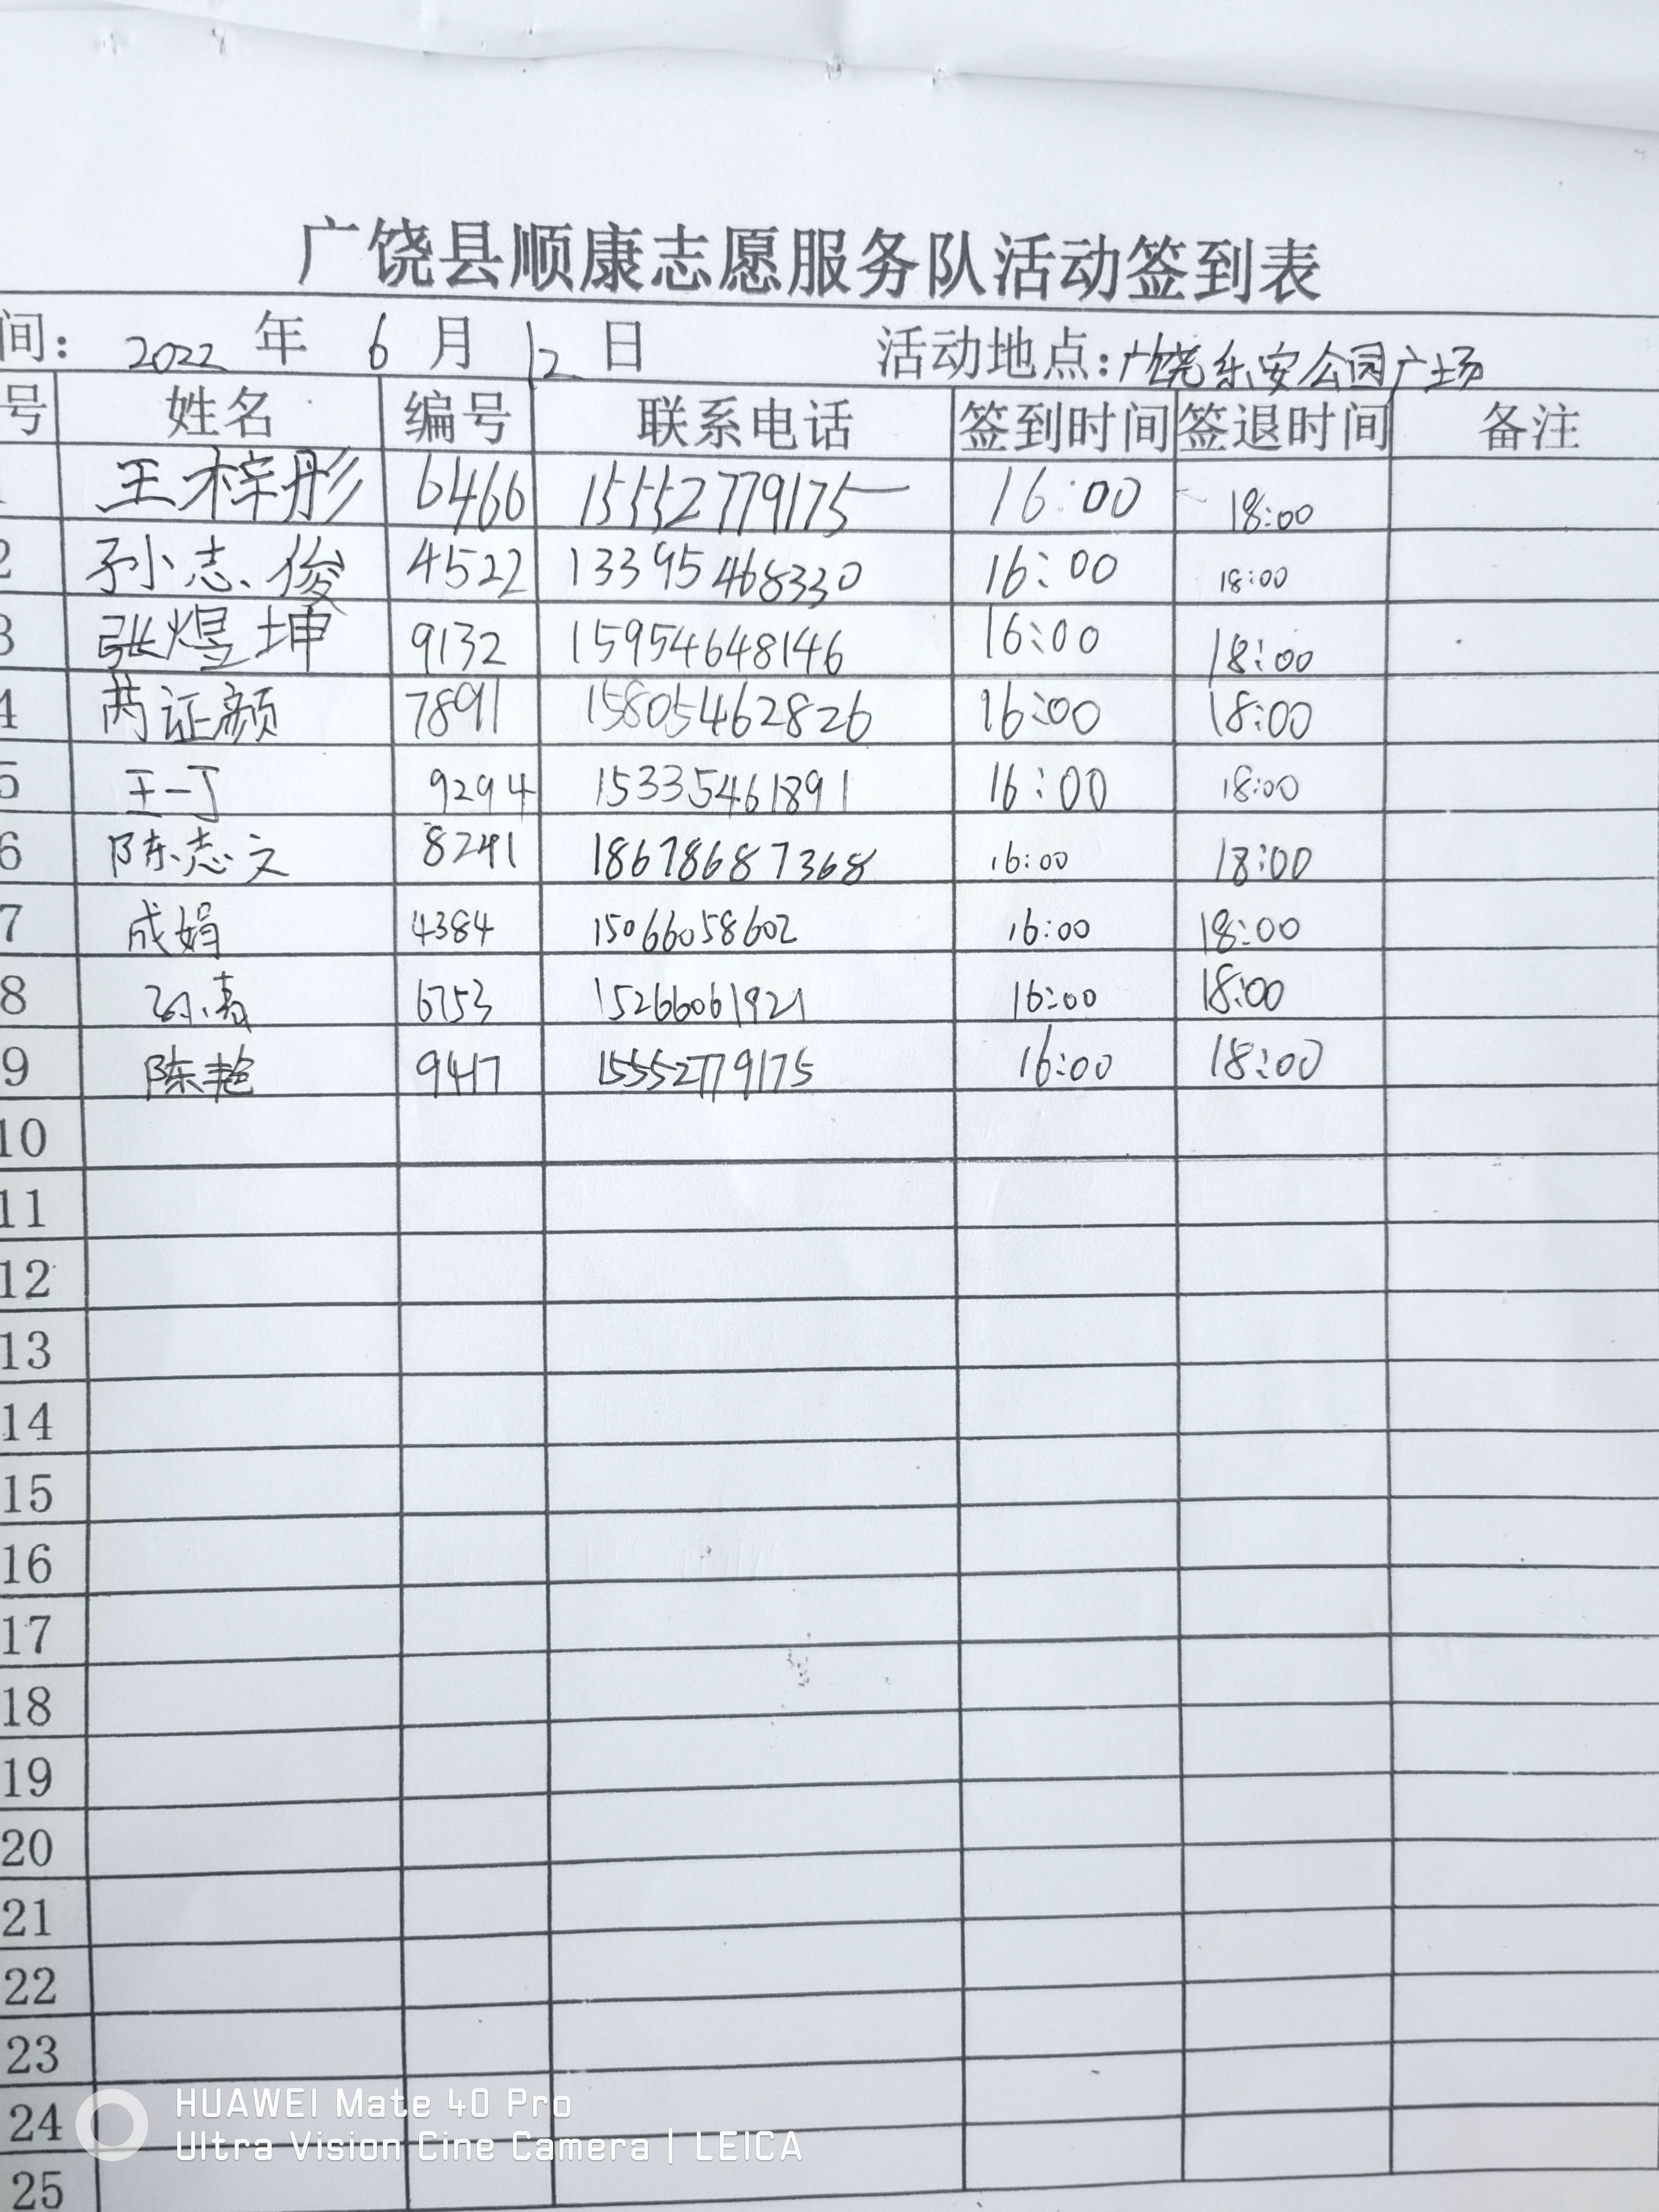 广饶县顺康志愿服务队活动签到表
间: 2022 年 6 月 12 日 活动地点:广饶乐安公园广场
号 姓名 编号 联系电话 签到时间 签退时间 备注
1 王梓彤 6466 15552779175 16:00 18:00
2 孙志俊 4522 13395468330 16:00 18:00
3 张煜坤 9132 15954648146 16:00 18:00
4 证颜 7891 15805462826 16:00 18:00
5 王一丁 9294 15335461891 16:00 18:00
6 陈志文 8241 18678687368 16:00 18:00
7 成娟 4384 15066058602 16:00 18:00
8 6753 15266061921 16:00 18:00
9 陈艳 9417 15552779175 16:00 18:00
10
11
12
13
14
15
16
17
18
19
20
21
22
23
24
25
HUAWEI Mate 40 Pro
Ultra Vision Cine Camera | LEICA